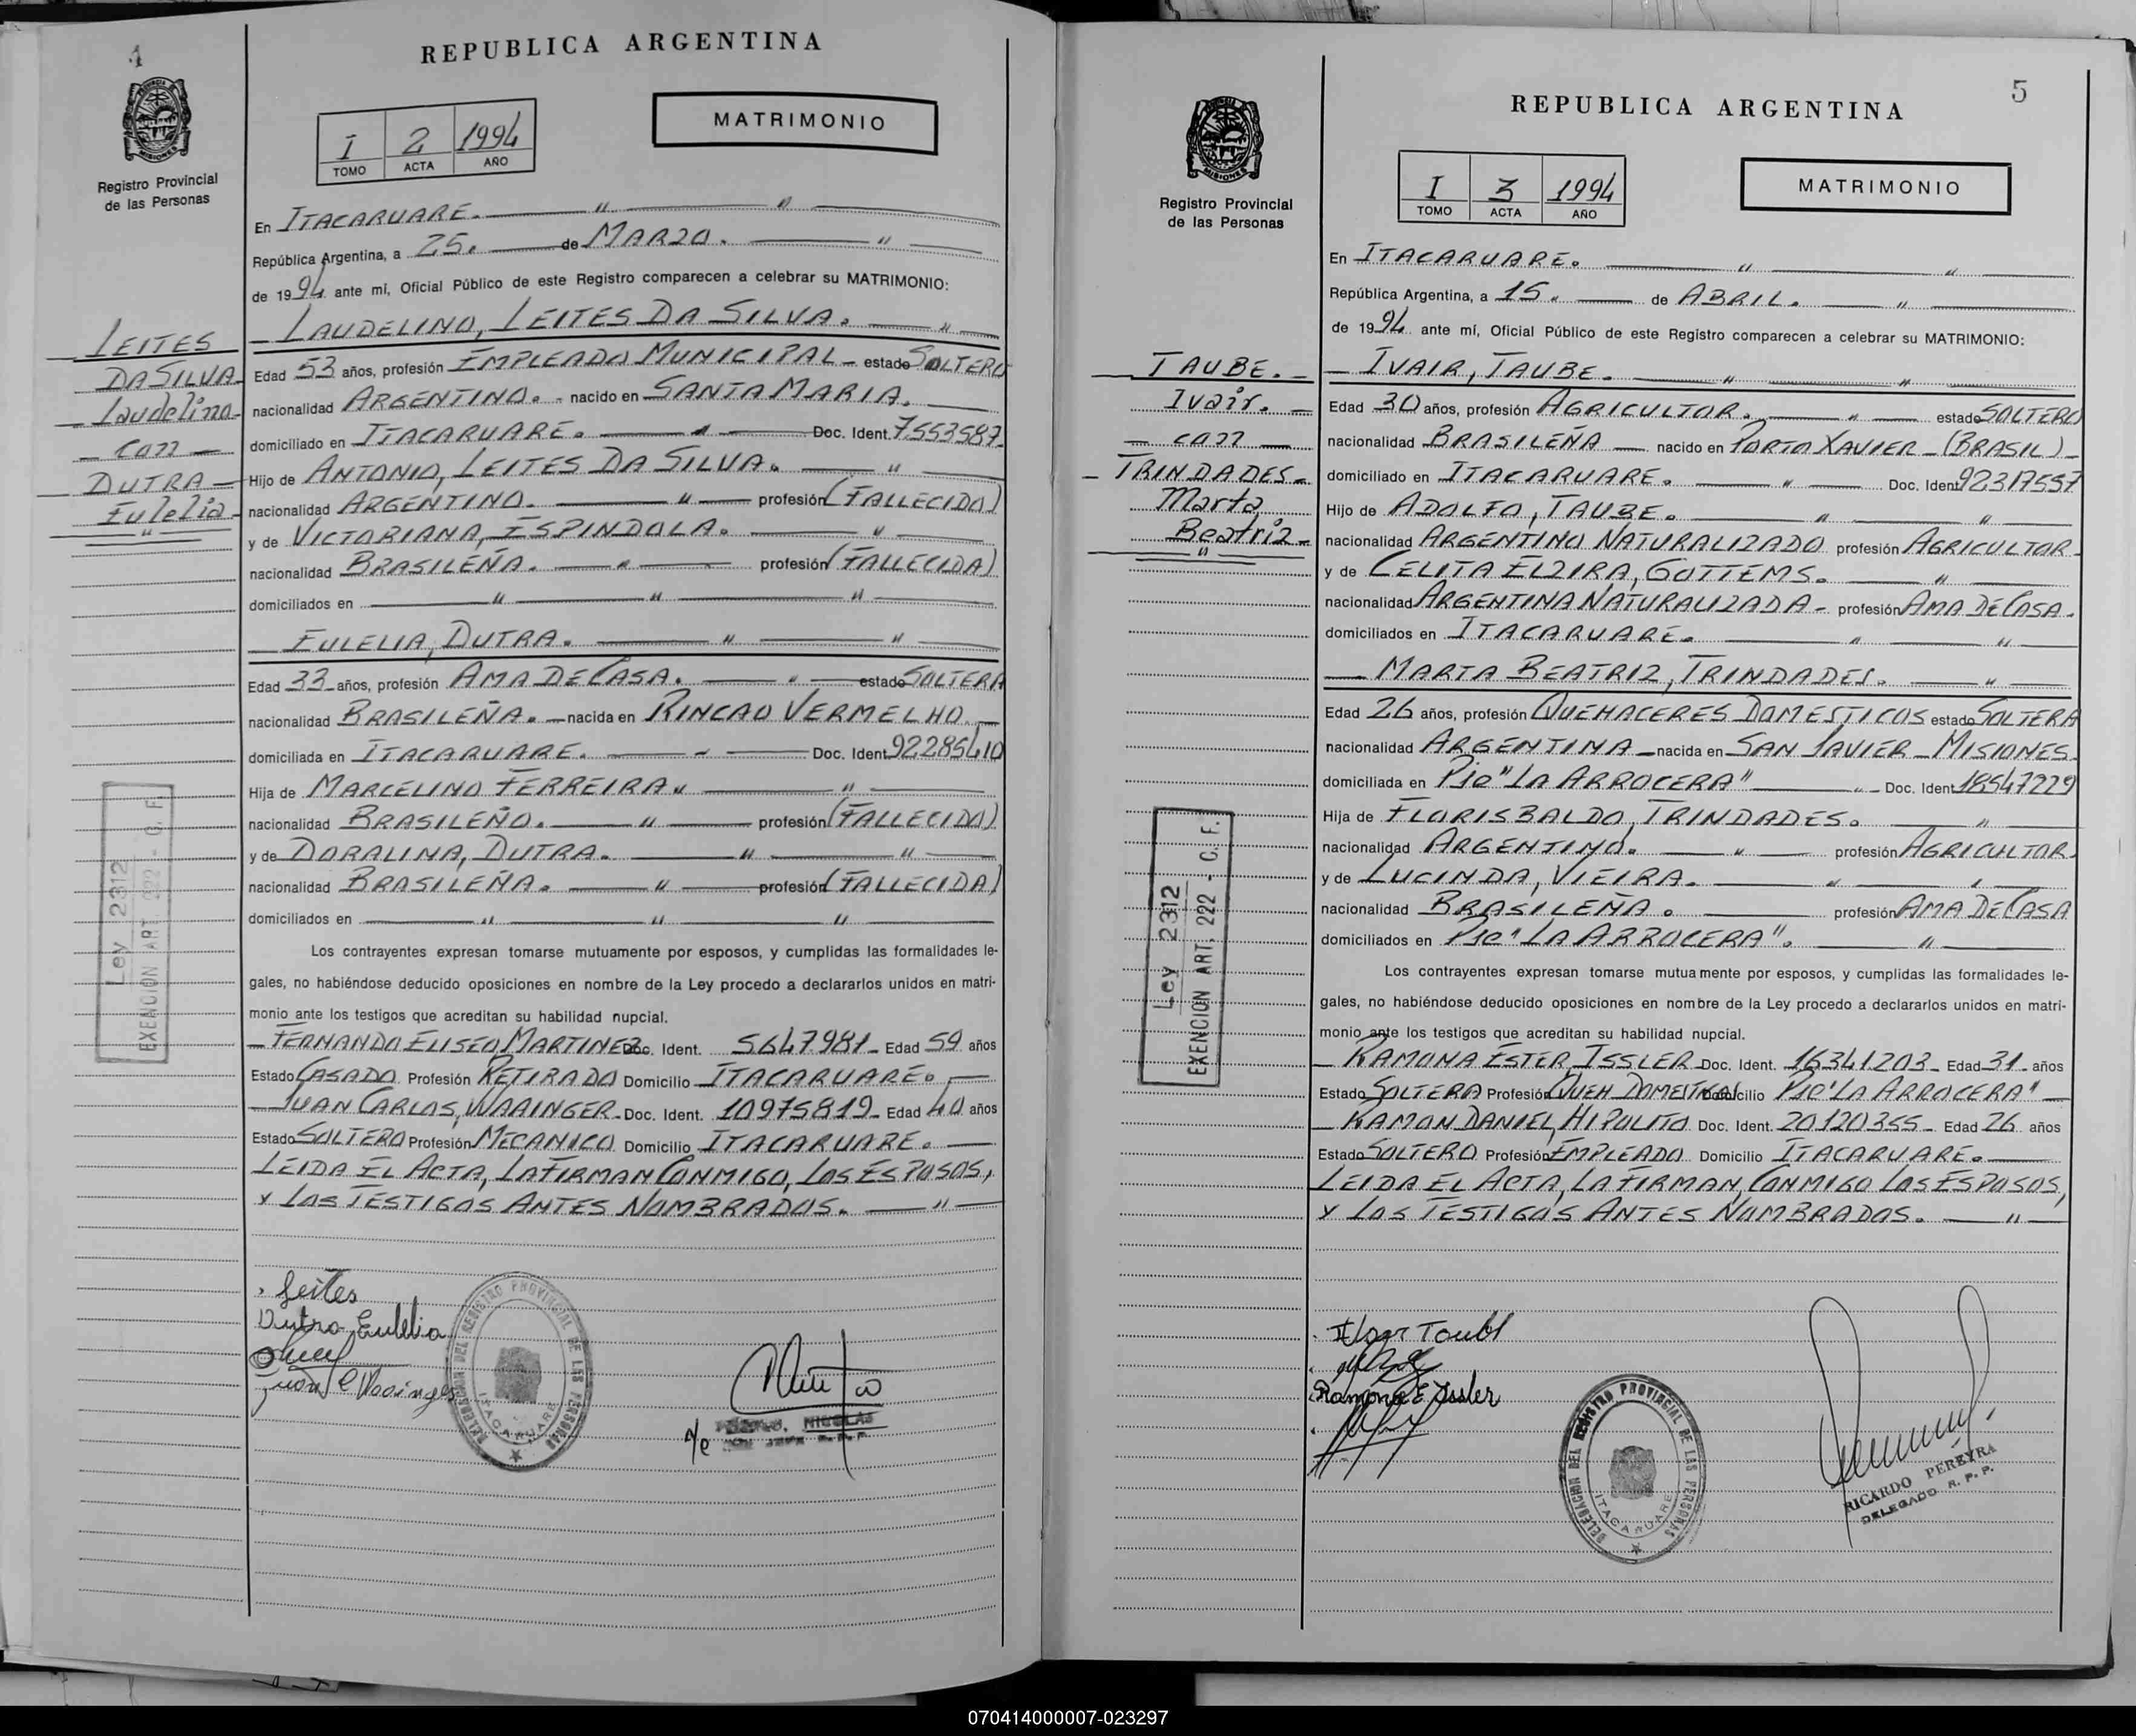 4
REPUBLICA ARGENTINA
I 2 1994
TOMO ACTA AÑO
MATRIMONIO
MISIONES
Registro Provincial
de las Personas
En ITACARUARE. " "
República Argentina, a 25. de MARZO. "
de 1994 ante mí, Oficial Público de este Registro comparecen a celebrar su MATRIMONIO:
LAUDELINO, LEITES DA SILVA. "
LEITES
DA SILVA
Laudelino
con
DUTRA
Eulelia
"
Edad 53 años, profesión EMPLEADO MUNICIPAL estado SOLTERO
nacionalidad ARGENTINO. nacido en SANTA MARIA.
domiciliado en ITACARUARE. " Doc. Ident. 7553587
Hijo de ANTONIO, LEITES DA SILVA. "
nacionalidad ARGENTINO. " profesión (FALLECIDO)
y de VICTORIANA, ESPINDOLA. "
nacionalidad BRASILEÑA. " profesión (FALLECIDA)
domiciliados en " " "
EULELIA, DUTRA. " "
Edad 33 años, profesión AMA DE CASA. " estado SOLTERA
nacionalidad BRASILEÑA. nacida en RINCAO VERMELHO.
domiciliada en ITACARUARE. " Doc. Ident. 92285410
Hija de MARCELINO FERREIRA " "
nacionalidad BRASILEÑO. " profesión (FALLECIDO)
y de DORALINA, DUTRA. " "
nacionalidad BRASILEÑA. " profesión (FALLECIDA)
domiciliados en " " "
Ley 2312
EXENCION ART. 222 - C. F.
Los contrayentes expresan tomarse mutuamente por esposos, y cumplidas las formalidades le-
gales, no habiéndose deducido oposiciones en nombre de la Ley procedo a declararlos unidos en matri-
monio ante los testigos que acreditan su habilidad nupcial.
FERNANDO ELISEO, MARTINEZ Doc. Ident. 5647981 Edad 59 años
Estado CASADO Profesión RETIRADO Domicilio ITACARUARE.
JUAN CARLOS, WARINGER Doc. Ident. 10975819 Edad 40 años
Estado SOLTERO Profesión MECANICO Domicilio ITACARUARE.
LEIDA EL ACTA, LA FIRMAN CONMIGO, LOS ESPOSOS,
Y LOS TESTIGOS ANTES NOMBRADOS. "
Leites
Dutra Eulelia
DELEGACION DEL REGISTRO PROVINCIAL DE LAS PERSONAS
ITACARUARE
NICOLAS
5
REPUBLICA ARGENTINA
I 3 1994
TOMO ACTA AÑO
MATRIMONIO
MISIONES
Registro Provincial
de las Personas
En ITACARUARE. " "
República Argentina, a 15. de ABRIL. "
de 1994 ante mí, Oficial Público de este Registro comparecen a celebrar su MATRIMONIO:
IVAIR, TAUBE. " "
TAUBE.
Ivair.
con
TRINDADES
Marta
Beatriz
"
Edad 30 años, profesión AGRICULTOR. " estado SOLTERO
nacionalidad BRASILEÑA nacido en PORTO XAVIER (BRASIL)
domiciliado en ITACARUARE. " Doc. Ident. 92317557
Hijo de ADOLFO, TAUBE. " "
nacionalidad ARGENTINO NATURALIZADO profesión AGRICULTOR
y de CELITA ELZIRA, GOTTEMS. "
nacionalidad ARGENTINA NATURALIZADA profesión AMA DE CASA.
domiciliados en ITACARUARE. " "
MARTA BEATRIZ, TRINDADES. "
Edad 26 años, profesión QUEHACERES DOMESTICOS estado SOLTERA
nacionalidad ARGENTINA nacida en SAN JAVIER MISIONES
domiciliada en Pje "LA ARROCERA" " Doc. Ident. 18547229
Hija de FLORISBALDO, TRINDADES. "
nacionalidad ARGENTINO. " profesión AGRICULTOR
y de LUCINDA, VIEIRA. " "
nacionalidad BRASILEÑA. profesión AMA DE CASA
domiciliados en Pje "LA ARROCERA". "
Ley 2312
EXENCION ART. 222 - C. F.
Los contrayentes expresan tomarse mutuamente por esposos, y cumplidas las formalidades le-
gales, no habiéndose deducido oposiciones en nombre de la Ley procedo a declararlos unidos en matri-
monio ante los testigos que acreditan su habilidad nupcial.
RAMONA ESTER ISSLER Doc. Ident. 16341203 Edad 31 años
Estado SOLTERA Profesión QUEH DOMESTICOS Domicilio Pje "LA ARROCERA"
RAMON DANIEL, HIPOLITO Doc. Ident. 20120355 Edad 26 años
Estado SOLTERO Profesión EMPLEADO Domicilio ITACARUARE.
LEIDA EL ACTA, LA FIRMAN CONMIGO LOS ESPOSOS,
Y LOS TESTIGOS ANTES NOMBRADOS. "
Ramona E Issler
DELEGACION DEL REGISTRO PROVINCIAL DE LAS PERSONAS
ITACARUARE
RICARDO PEREYRA
DELEGADO R. P. P.
070414000007-023297